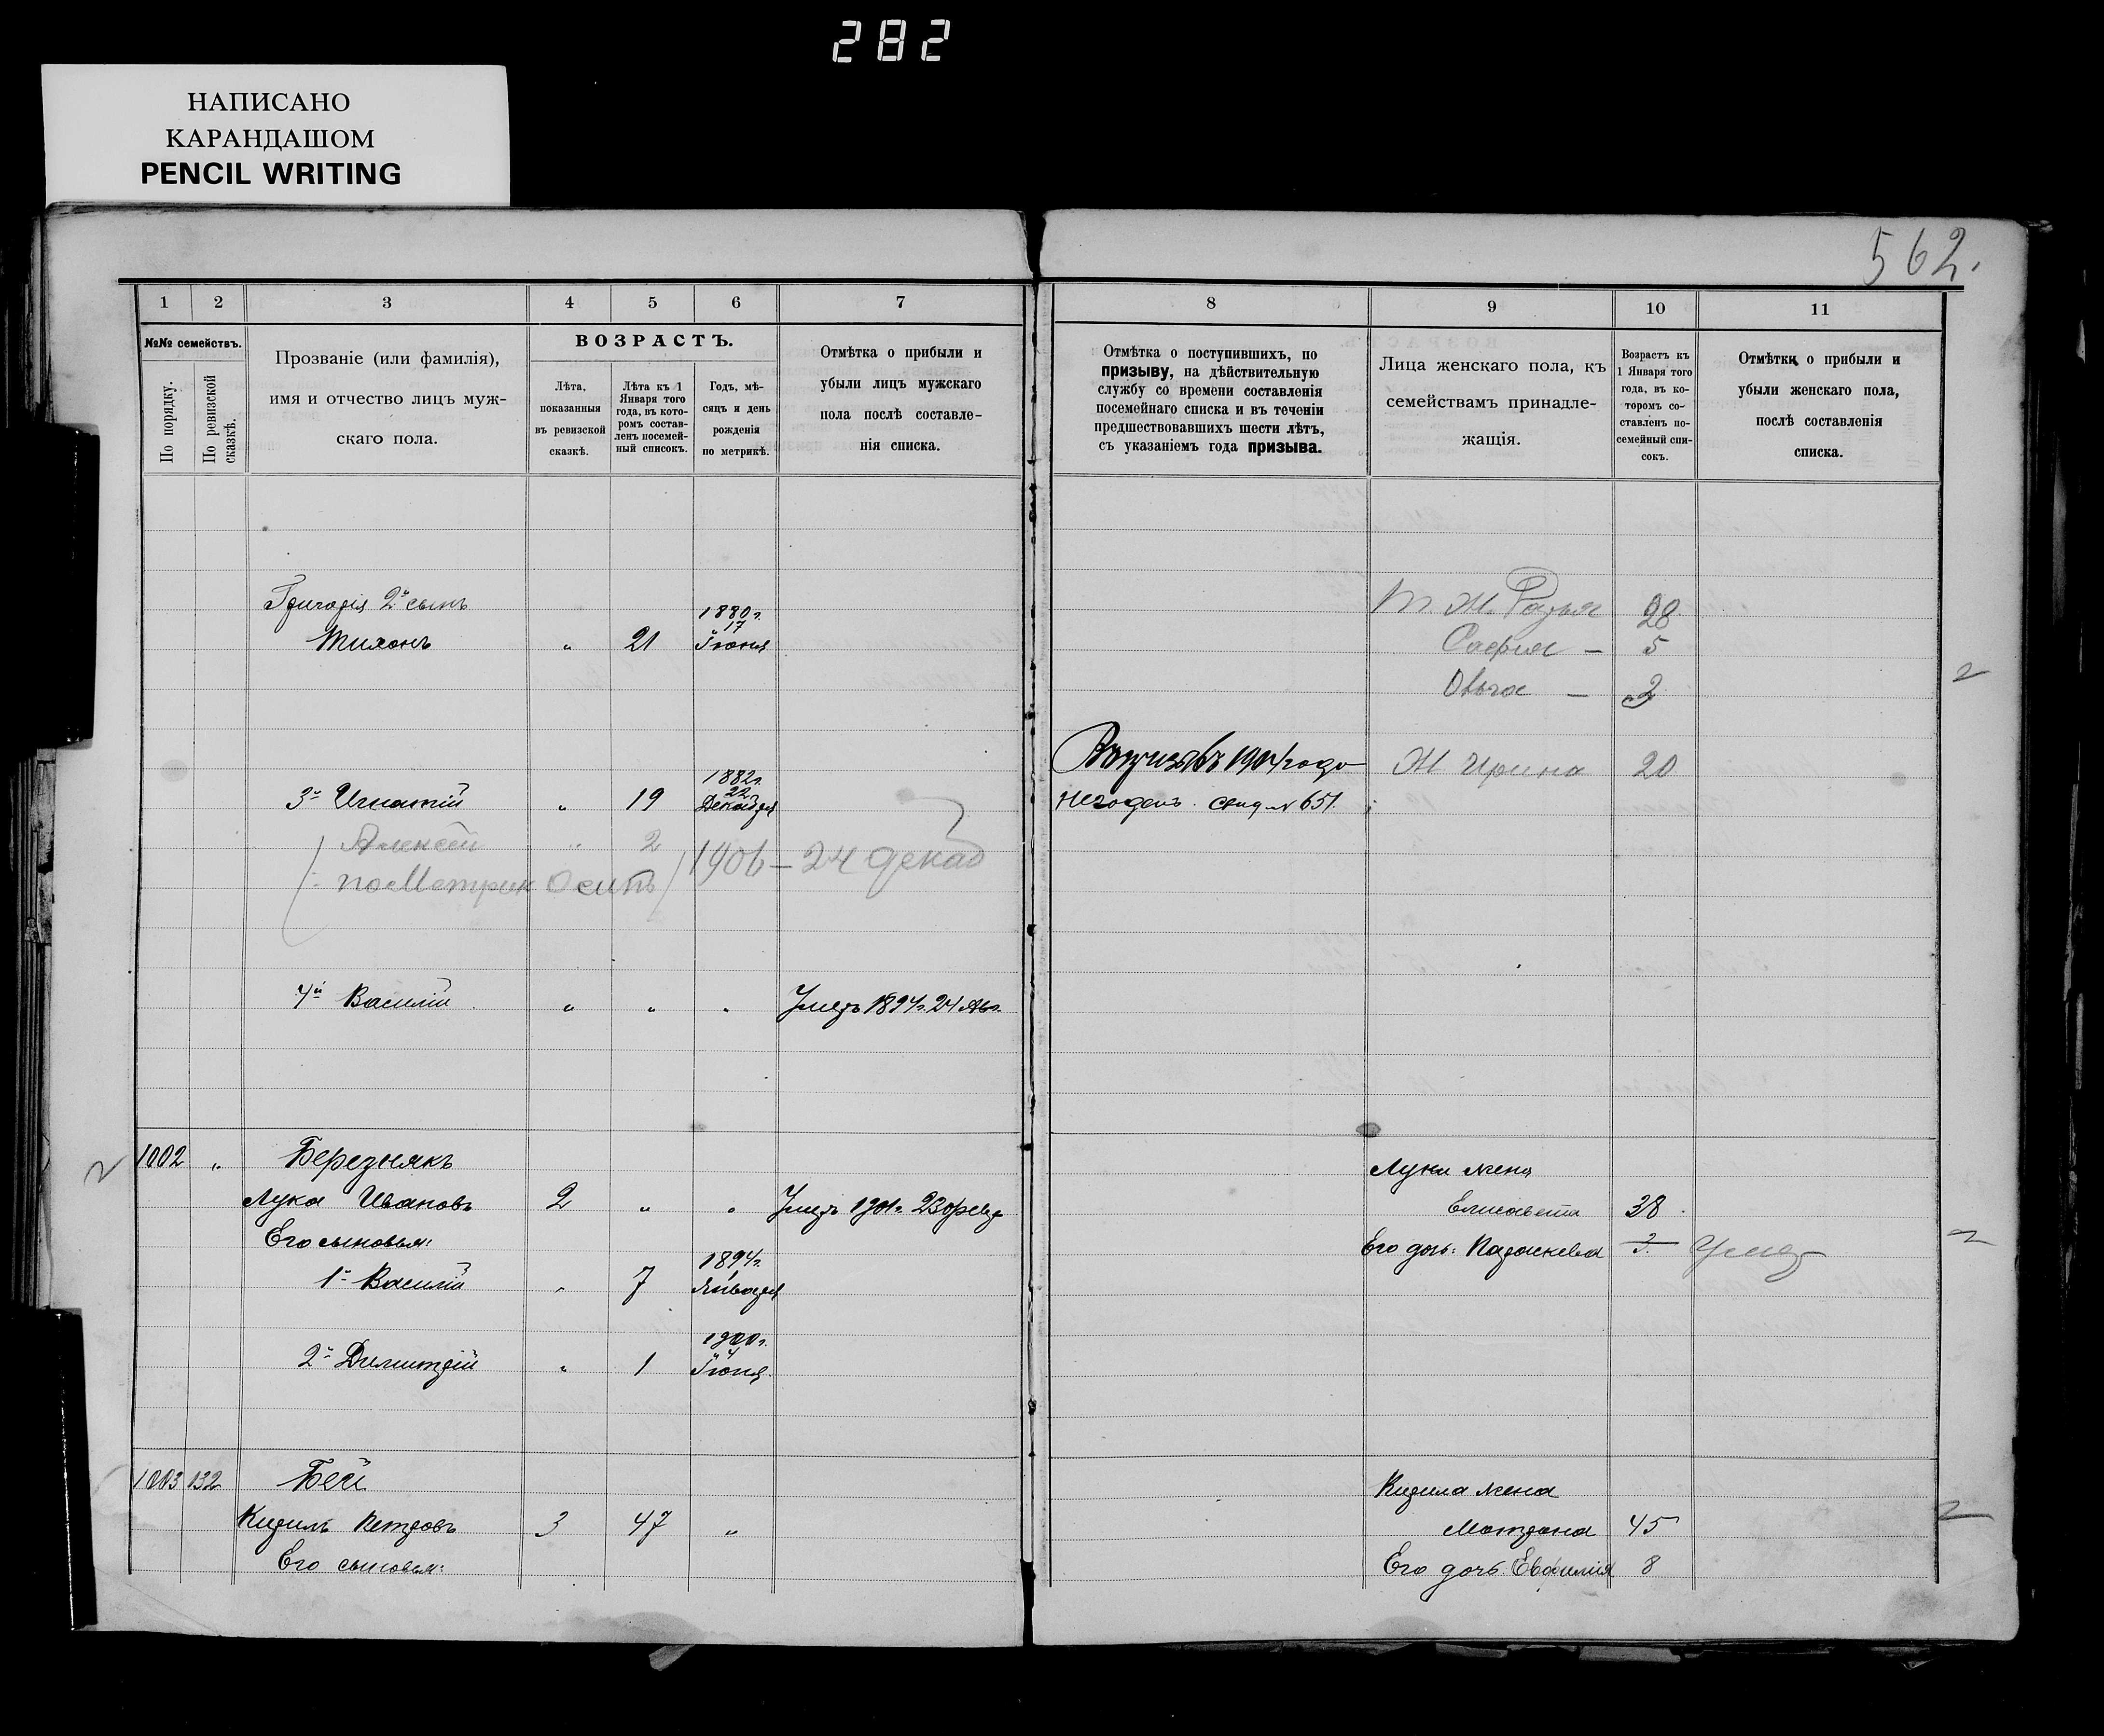 282
НАПИСАНО
КАРАНДАШОМ
PENCIL WRITING
562.
1 2 3 4 5 6 7
№№ семействъ.
По порядку.
По ревизской сказкѣ.
Прозваніе (или фамилія),
имя и отчество лицъ муж-
скаго пола.
ВОЗРАСТЪ.
Лѣта,
показанныя
въ ревизской
сказкѣ.
Лѣта къ 1
Января того
года, въ кото-
ромъ состав-
ленъ посемей-
ный списокъ.
Годъ, мѣ-
сяцъ и день
рожденія
по метрикѣ.
Отмѣтка о прибыли и
убыли лицъ мужскаго
пола послѣ составле-
нія списка.
8 9 10 11
Отмѣтка о поступившихъ, по
призыву, на дѣйствительную
службу со времени составленія
посемейнаго списка и въ теченіи
предшествовавшихъ шести лѣтъ,
съ указаніемъ года призыва.
Лица женскаго пола, къ
семействамъ принадле-
жащія.
Возрастъ къ
1 Января того
года, въ ко-
торомъ со-
ставленъ по-
семейный спи-
сокъ.
Отмѣтки о прибыли и
убыли женскаго пола,
послѣ составленія
списка.
Григорія 2й сынъ
1880 г.
17
Тихонъ " 21 Іюня
28
София – 5
Ольга – 3
2
1882 г.
22
3й Игнатій " 19 Декабря
1904 года
Ж Ирина 20
негоденъ. свид. № 651.
Алексей " 2
по Метрик Осипъ 1906 – 24 декаб
4й Василій " " " Умеръ 1894 г. 24 Авг.
2
1002 " Березнякъ
Луки жена
Лука Ивановъ 2 " " Умеръ 1901 г. 23 февр
Елисавета 38
Его сыновья:
Его дочь: Параскева 3. Умер
2
1894 г.
1й Василій " 7 Января
1900 г.
4
2й Димитрій " 1 Іюня
1003 132 Бей
Кирила жена
Кирилъ Петровъ 3 47 "
Матрона 45
2
Его сыновья:
Его дочь Евфимія 8